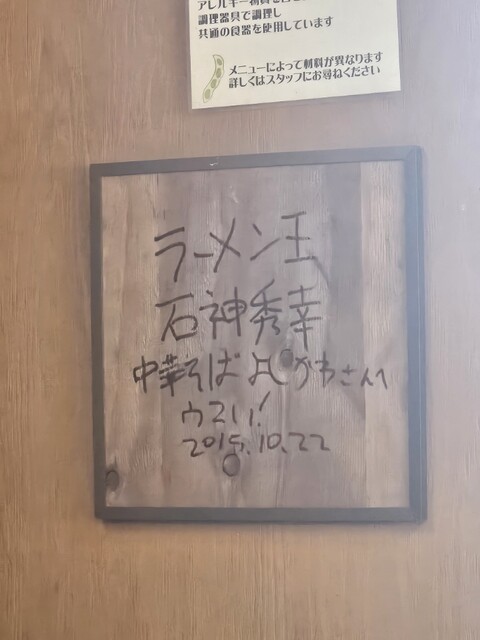 調理器具で調理し
共通の食器を使用しています
メニューによって材料が異なります
詳しくはスタッフにお尋ねください
ラーメン王
石神秀幸
中華そば よしかわさんへ
ウマい!
2015.10.22